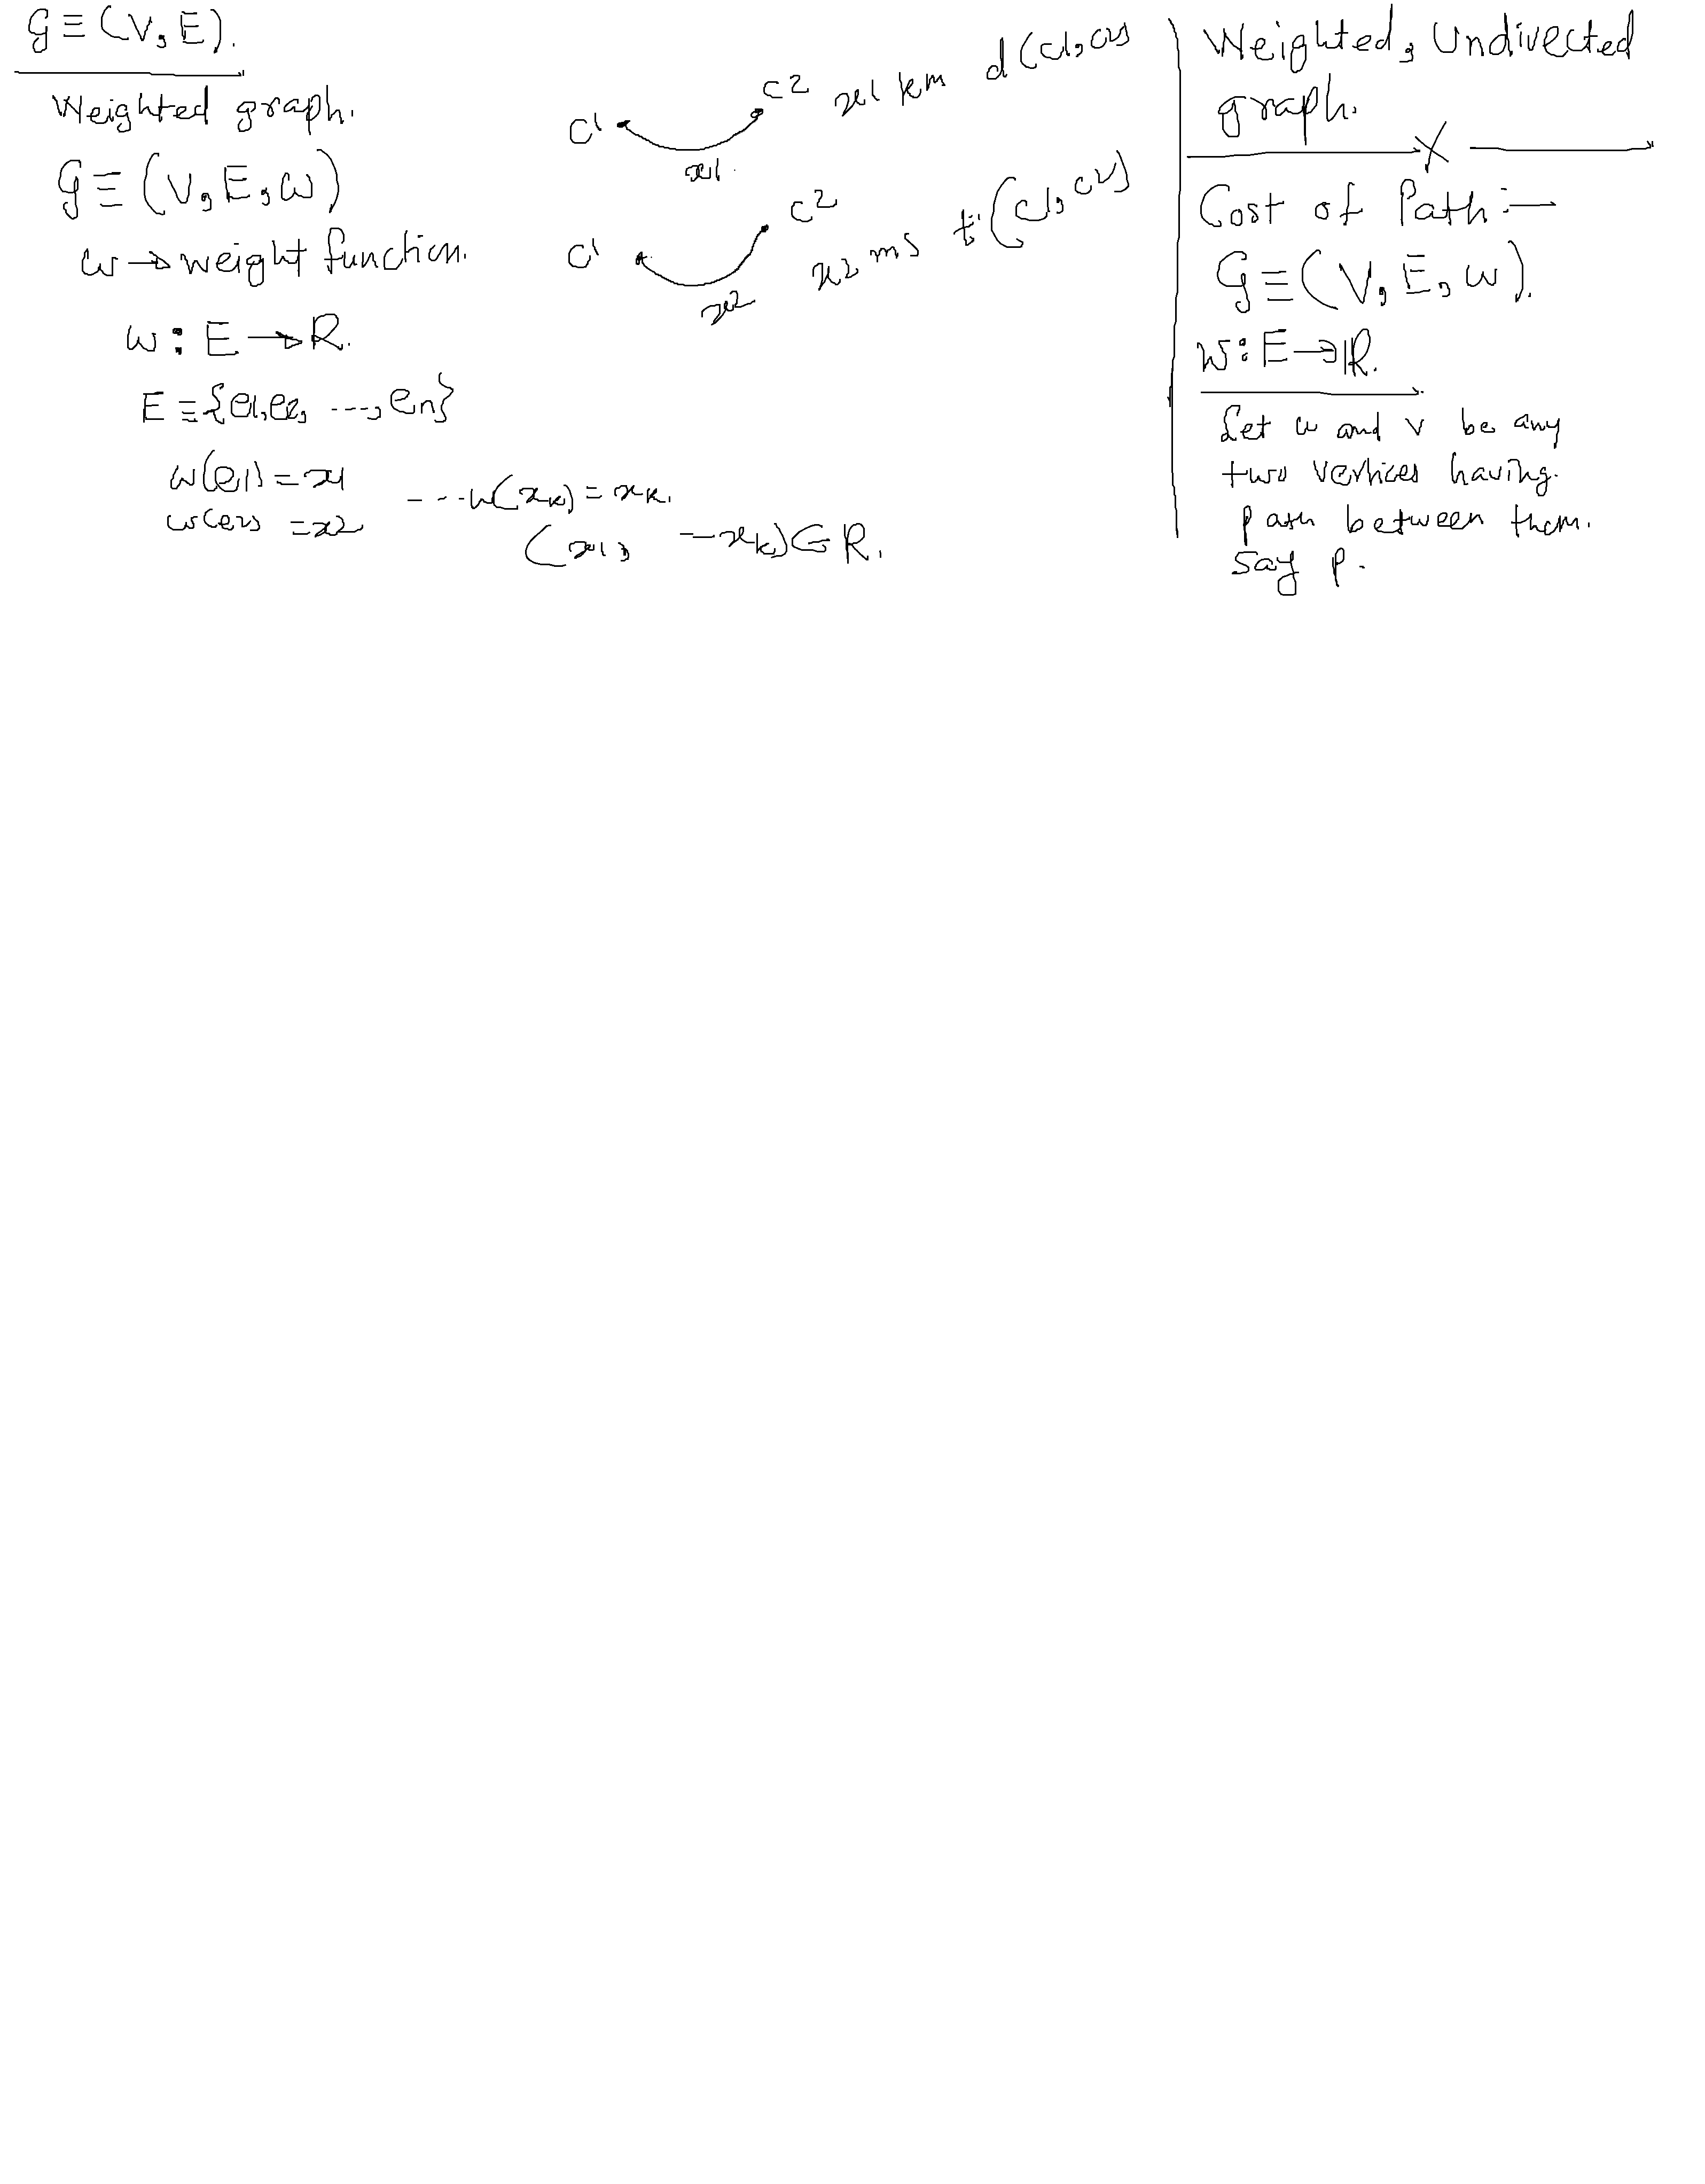 G ≡ (V, E).
Weighted graph.
G ≡ (V, E, w)
w → weight function.
w : E → R.
E ≡ {e1, e2, ---, en}
w(e1) = x1
w(e2) = x2
---w(xk) = xk.
(x1, —xk) ∈ R.
c1 c2 x1 km d(c1, c2)
x1.
c1 c2 x2 ms t(c1, c2)
x2
Weighted, Undirected
graph.
X
Cost of Path :—
G ≡ (V, E, w).
w : E → R.
Let u and v be any
two vertices having.
path between them.
Say p.